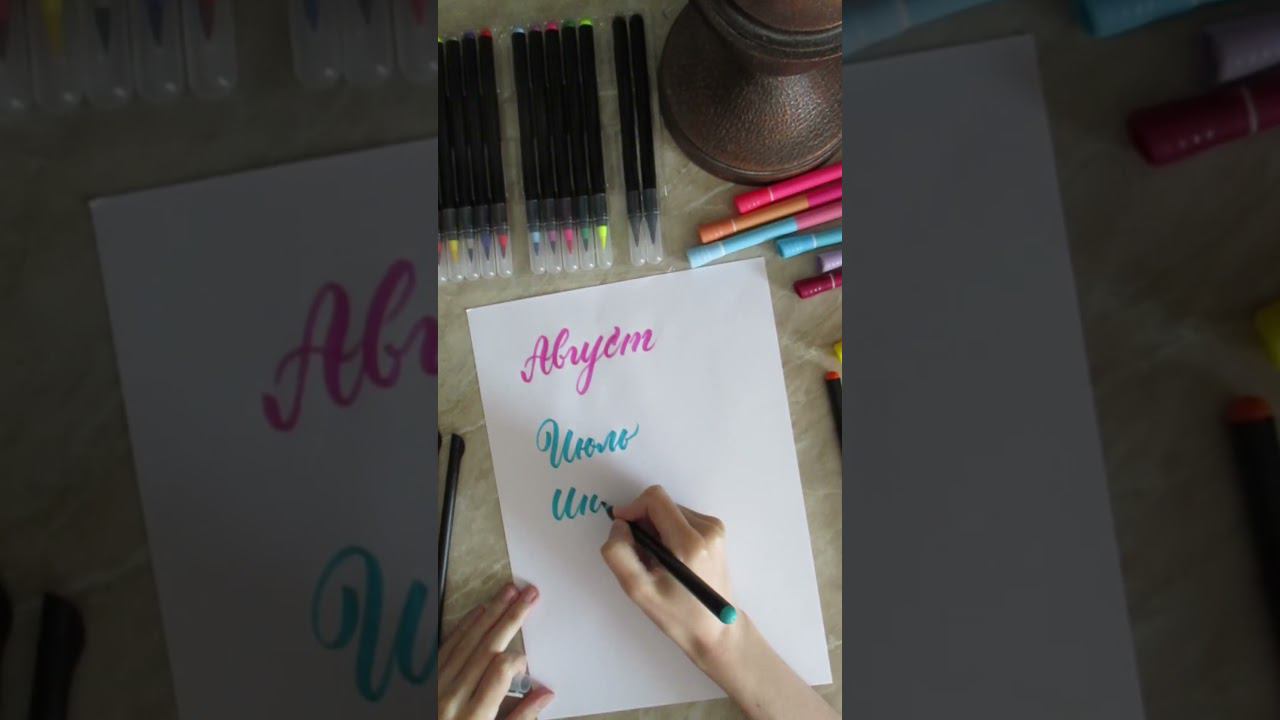 Август
Июль
Ин